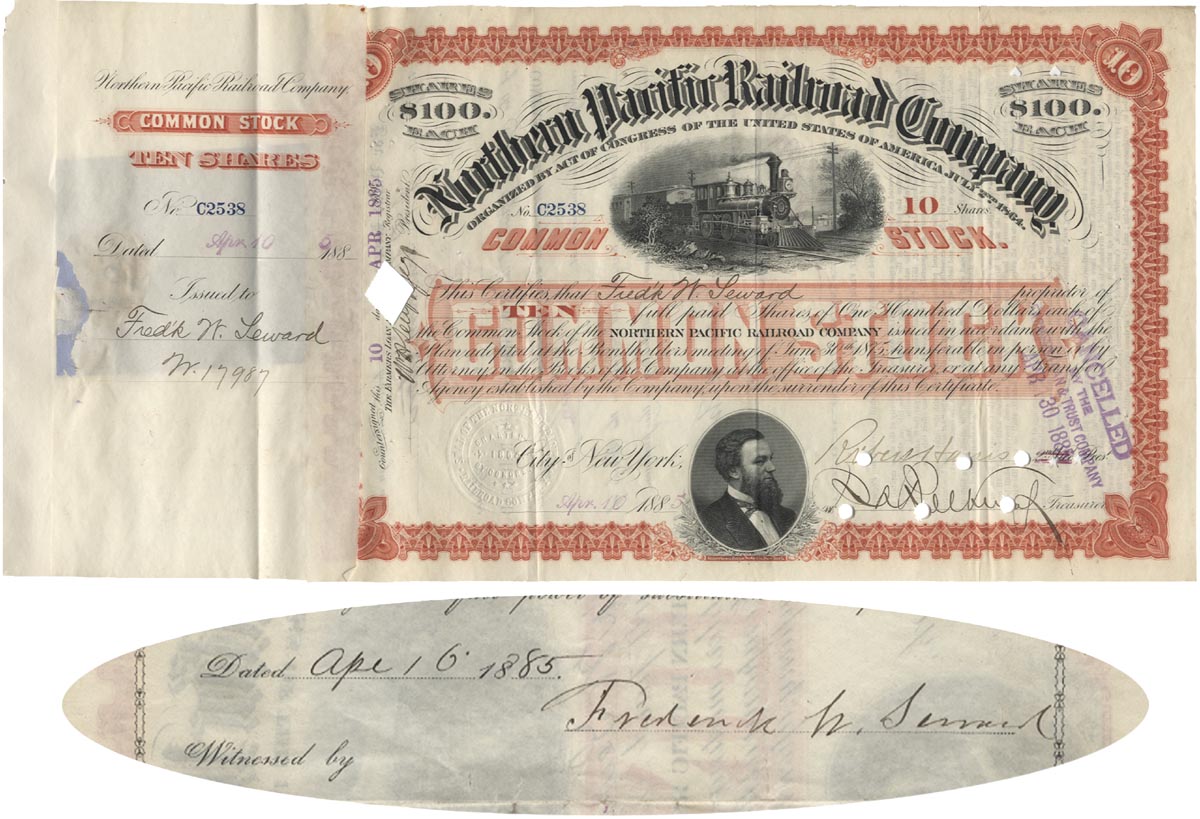 Northern Pacific Railroad Company.
COMMON STOCK
TEN SHARES
No. C2538
Dated Apr. 10 1885
Issued to
Fredk W. Seward
W. 17987
10 APR 1885
Countersigned this
President
10
SHARES $100. EACH
SHARES $100. EACH
Northern Pacific Railroad Company,
ORGANIZED BY ACT OF CONGRESS OF THE UNITED STATES OF AMERICA, JULY 2ND 1864.
No. C2538
10 Shares
COMMON STOCK.
This Certifies that Fredk W. Seward proprietor of
TEN full paid Shares, One Hundred Dollars each of
the Common Stock of the NORTHERN PACIFIC RAILROAD COMPANY issued in accordance with the
Plan adopted at the Bondholders meeting of June 30th 1875, transferable in person or by
Attorney on the Books of the Company at the office of the Treasurer or at any
Agency established by the Company, upon the surrender of this Certificate.
COMMON STOCK
CANCELLED
BY THE
& TRUST COMPANY
30 188
City of New York,
Apr. 10 1885
Robert Harris
Pres
Treasurer
Dated Apr 16 1885.
Frederick W. Seward
Witnessed by